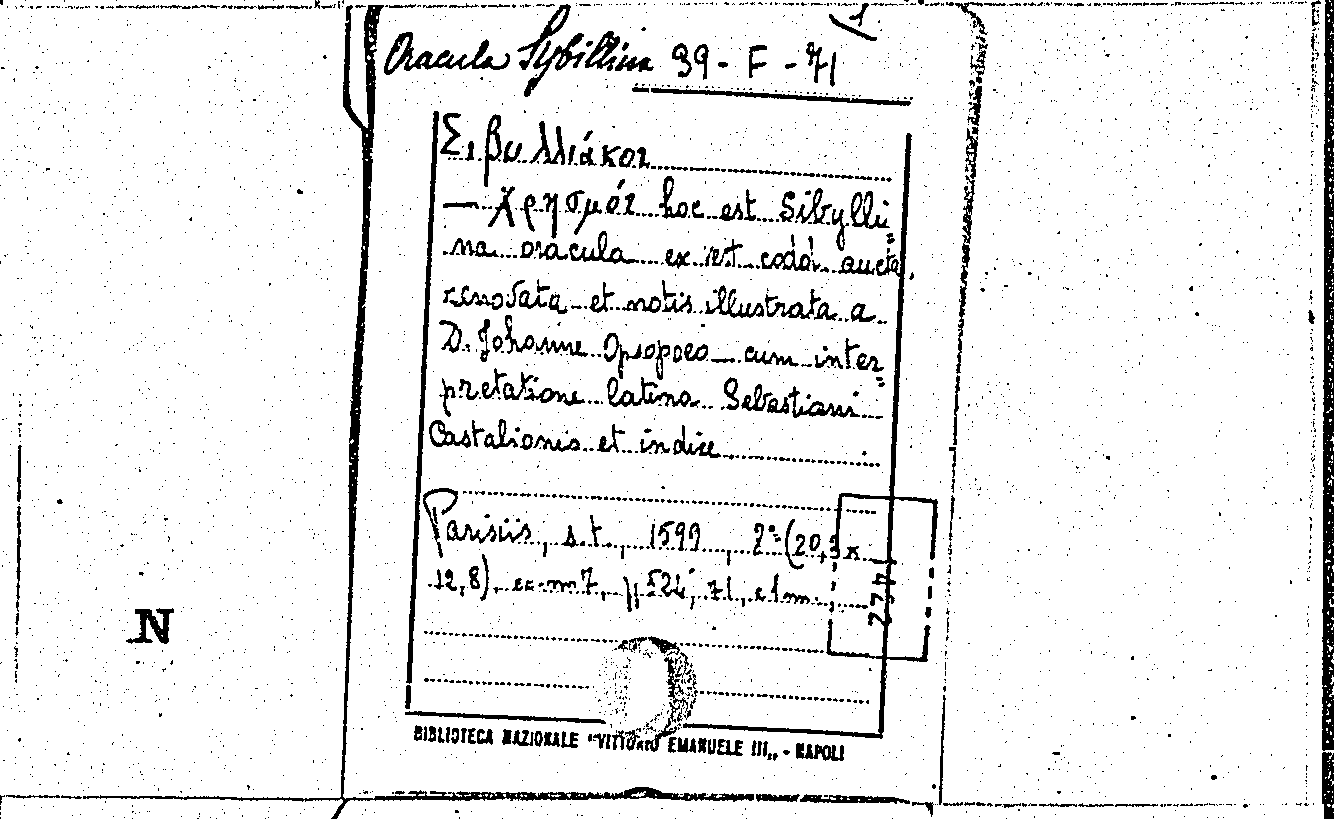 1
Oracula Sybillina 39 - F - 71
Σιβυλλιάκοι
— χρησμοί hoc est Sibylli„
na oracula ex vet. codd. aucta,
renovata et notis illustrata a
D. Johanne Opsopoeo cum inter„
pretatione latina Sebastiani
Castalionis et indice
Parisiis, s.t., 1599, 2° (20,3 x
12,8), 524, 71, e 1 m.
N
BIBLIOTECA NAZIONALE "VITTORIO EMANUELE III„ - NAPOLI